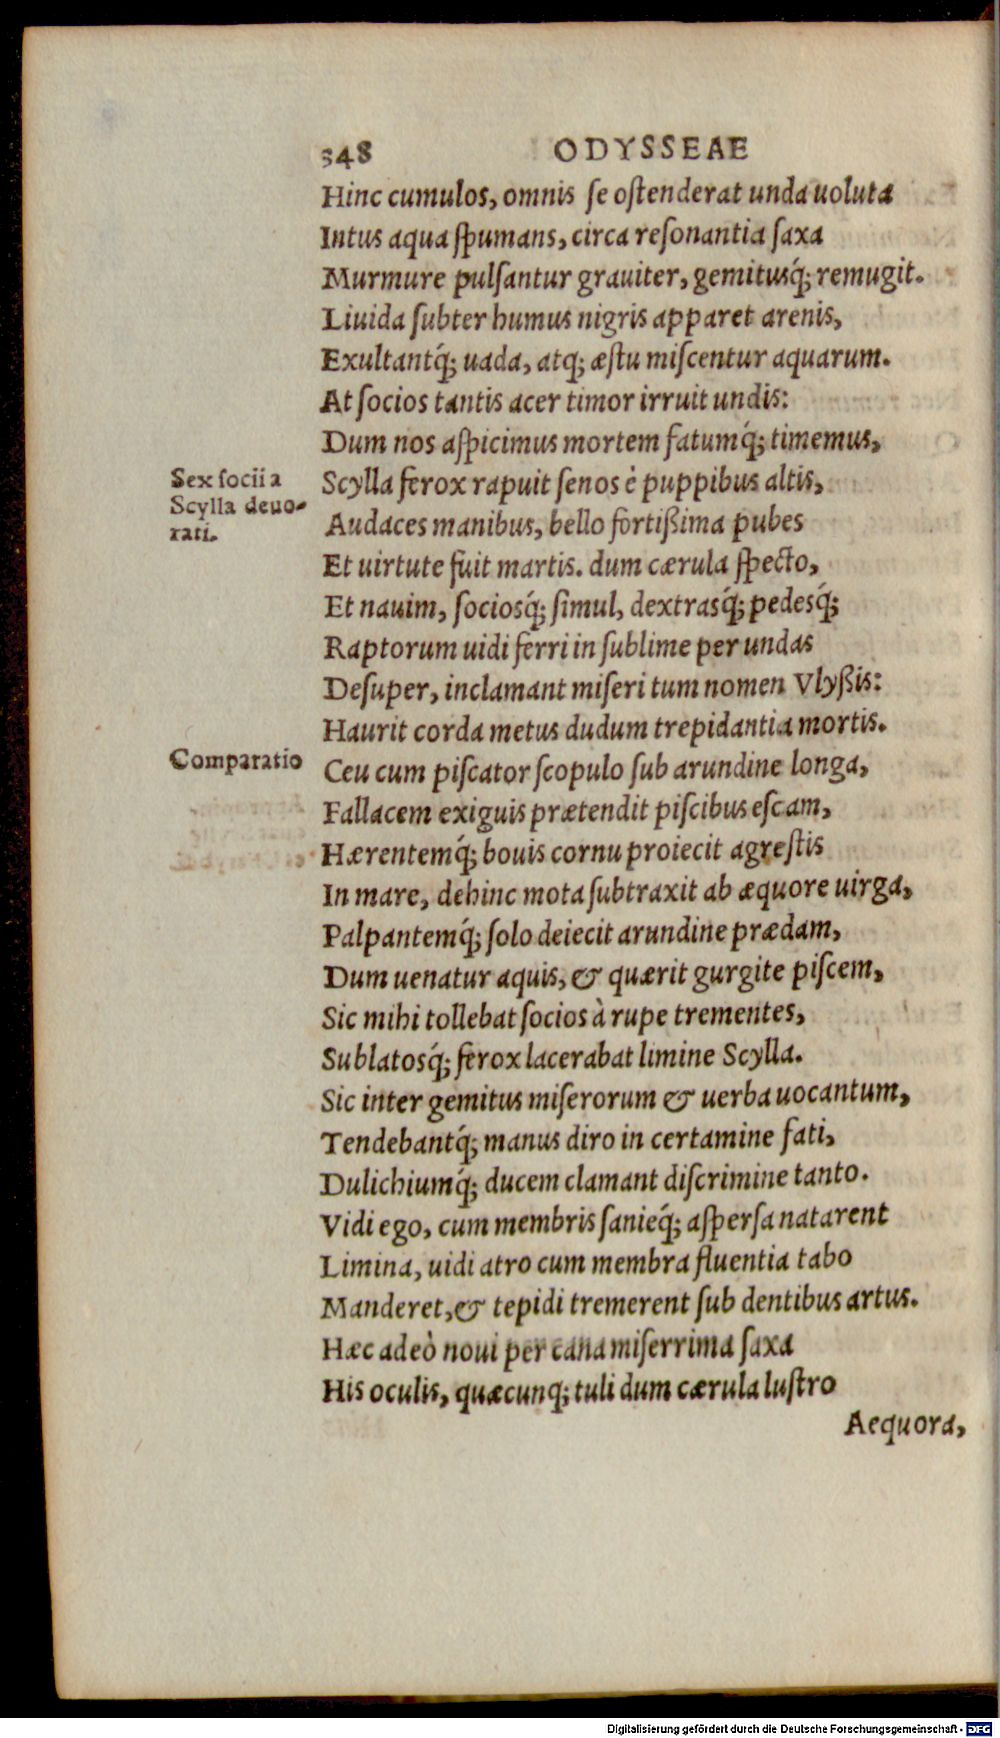 348 ODYSSEAE
Hinc cumulos, omnis se oſtenderat unda uoluta
Intus aqua ſpumans, circa reſonantia ſaxa
Murmure pulſantur grauiter, gemitusq́; remugit.
Liuida ſubter humus nigris apparet arenis,
Exultantq́; uada, atq; æſtu miſcentur aquarum.
At ſocios tantis acer timor irruit undis:
Dum nos aſpicimus mortem fatumq́; timemus,
Sex ſocii a
Scylla deuo-
rati.
Scylla ferox rapuit ſenos è puppibus altis,
Audaces manibus, bello fortißima pubes
Et uirtute fuit martis. dum cærula ſpecto,
Et nauim, ſociosq́; ſimul, dextrasq́; pedesq́;
Raptorum uidi ferri in ſublime per undas
Deſuper, inclamant miſeri tum nomen Vlyßis:
Haurit corda metus dudum trepidantia mortis.
Comparatio
Ceu cum piſcator ſcopulo ſub arundine longa,
Fallacem exiguis prætendit piſcibus eſcam,
Hærentemq́; bouis cornu proiecit agreſtis
In mare, dehinc mota ſubtraxit ab æquore uirga,
Palpantemq́; ſolo deiecit arundine prædam,
Dum uenatur aquis, & quærit gurgite piſcem,
Sic mihi tollebat ſocios à rupe trementes,
Sublatosq́; ferox lacerabat limine Scylla.
Sic inter gemitus miſerorum & uerba uocantum,
Tendebantq́; manus diro in certamine fati,
Dulichiumq́; ducem clamant diſcrimine tanto.
Vidi ego, cum membris ſanieq́; aſperſa natarent
Limina, uidi atro cum membra fluentia tabo
Manderet, & tepidi tremerent ſub dentibus artus.
Hæc adeò noui per cana miſerrima ſaxa
His oculis, quæcunq; tuli dum cærula luſtro
Aequora,
Digitalisierung gefördert durch die Deutsche Forschungsgemeinschaft - DFG